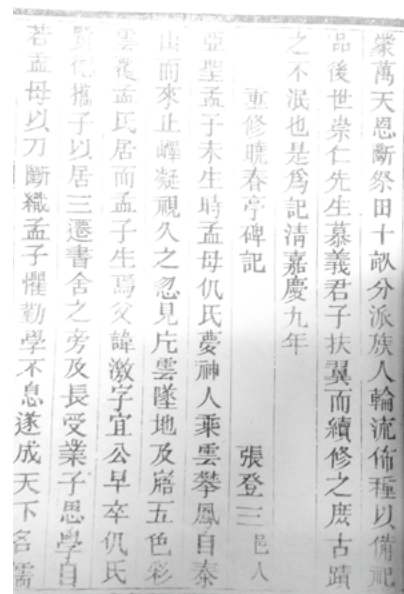 蒙萬天恩斷祭田十畝分派族人輪流佈種以備祀
品後世崇仁先生慕義君子扶翼而續修之庶古蹟
之不泯也是爲記清嘉慶九年
重修曉春亭碑記
張登三邑人
亞聖孟子未生時孟母仉氏夢神人乘雲攀鳳自泰
山而來止嶧凝視久之忽見片雲墜地及寤五色彩
雲覆孟氏居而孟子生焉父諱激字宜公早卒仉氏
賢德攜子以居三遷書舍之旁及長受業子思學自
若孟母以刀斷織孟子懼勤學不息遂成天下名需